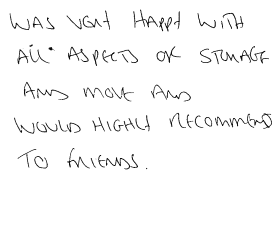 WAS VERY HAPPY WITH
ALL ASPECTS OF STORAGE
AND MOVE AND
WOULD HIGHLY RECOMMEND
TO FRIENDS.